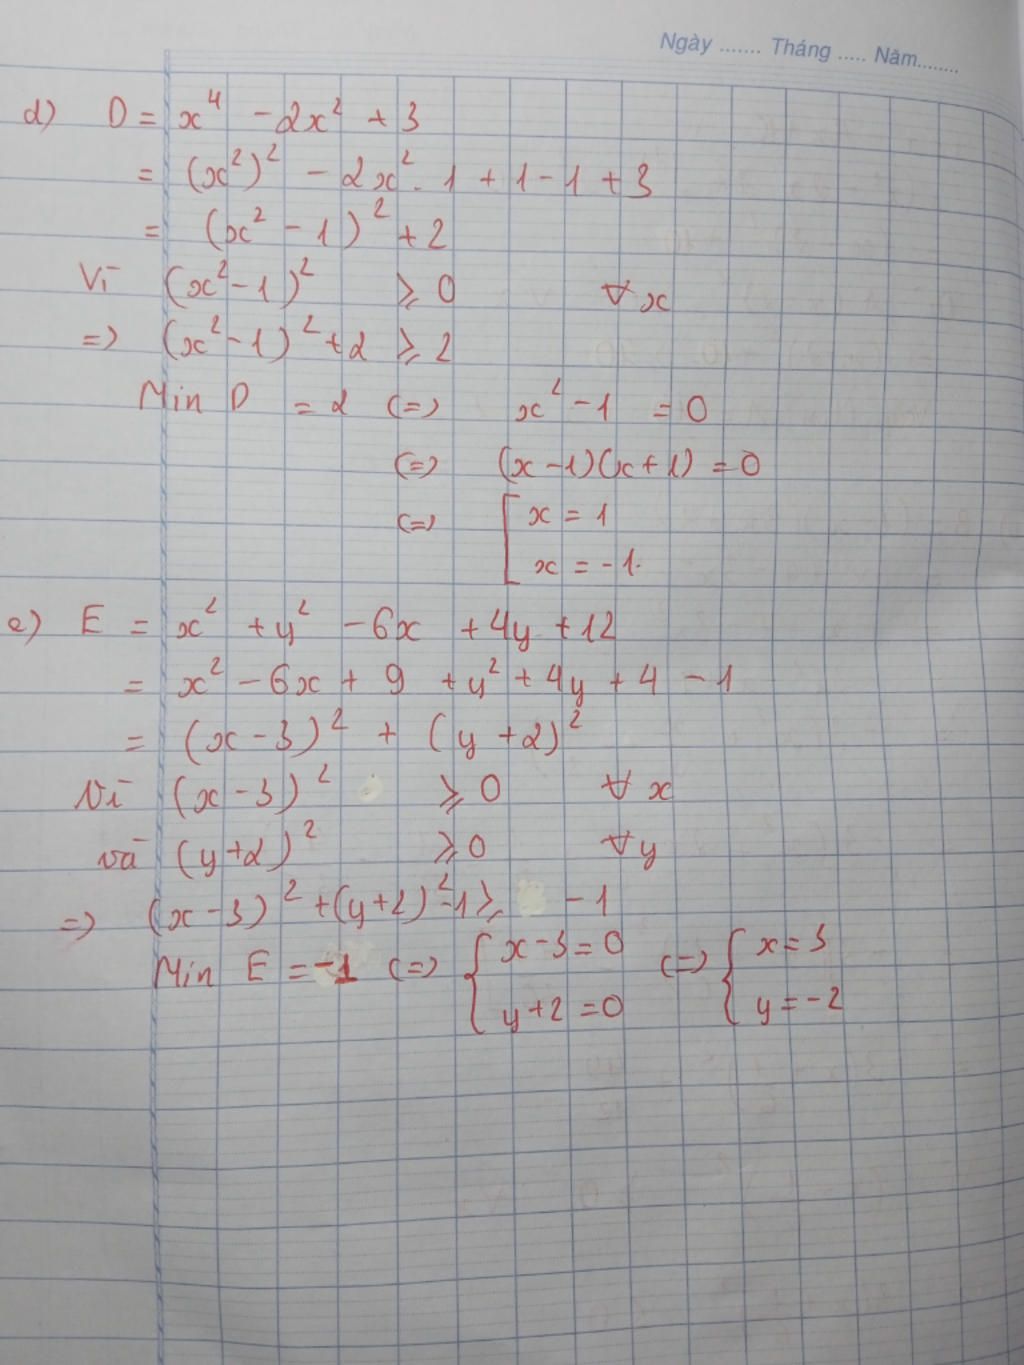 Ngày ....... Tháng ..... Năm.......
d) D = x⁴ - 2x² + 3
= (x²)² - 2x² . 1 + 1 - 1 + 3
= (x² - 1)² + 2
Vì (x² - 1)² ⩾ 0 ∀x
=> (x² - 1)² + 2 ⩾ 2
Min D = 2 (=) x² - 1 = 0
(=) (x - 1)(x + 1) = 0
(=) [ x = 1
x = -1.
e) E = x² + y² - 6x + 4y + 12
= x² - 6x + 9 + y² + 4y + 4 - 1
= (x - 3)² + (y + 2)²
Vì (x - 3)² ⩾ 0 ∀x
và (y + 2)² ⩾ 0 ∀y
=> (x - 3)² + (y + 2)² - 1 ⩾ - 1
Min E = -1 (=) { x - 3 = 0 (=) { x = 3
y + 2 = 0 y = -2